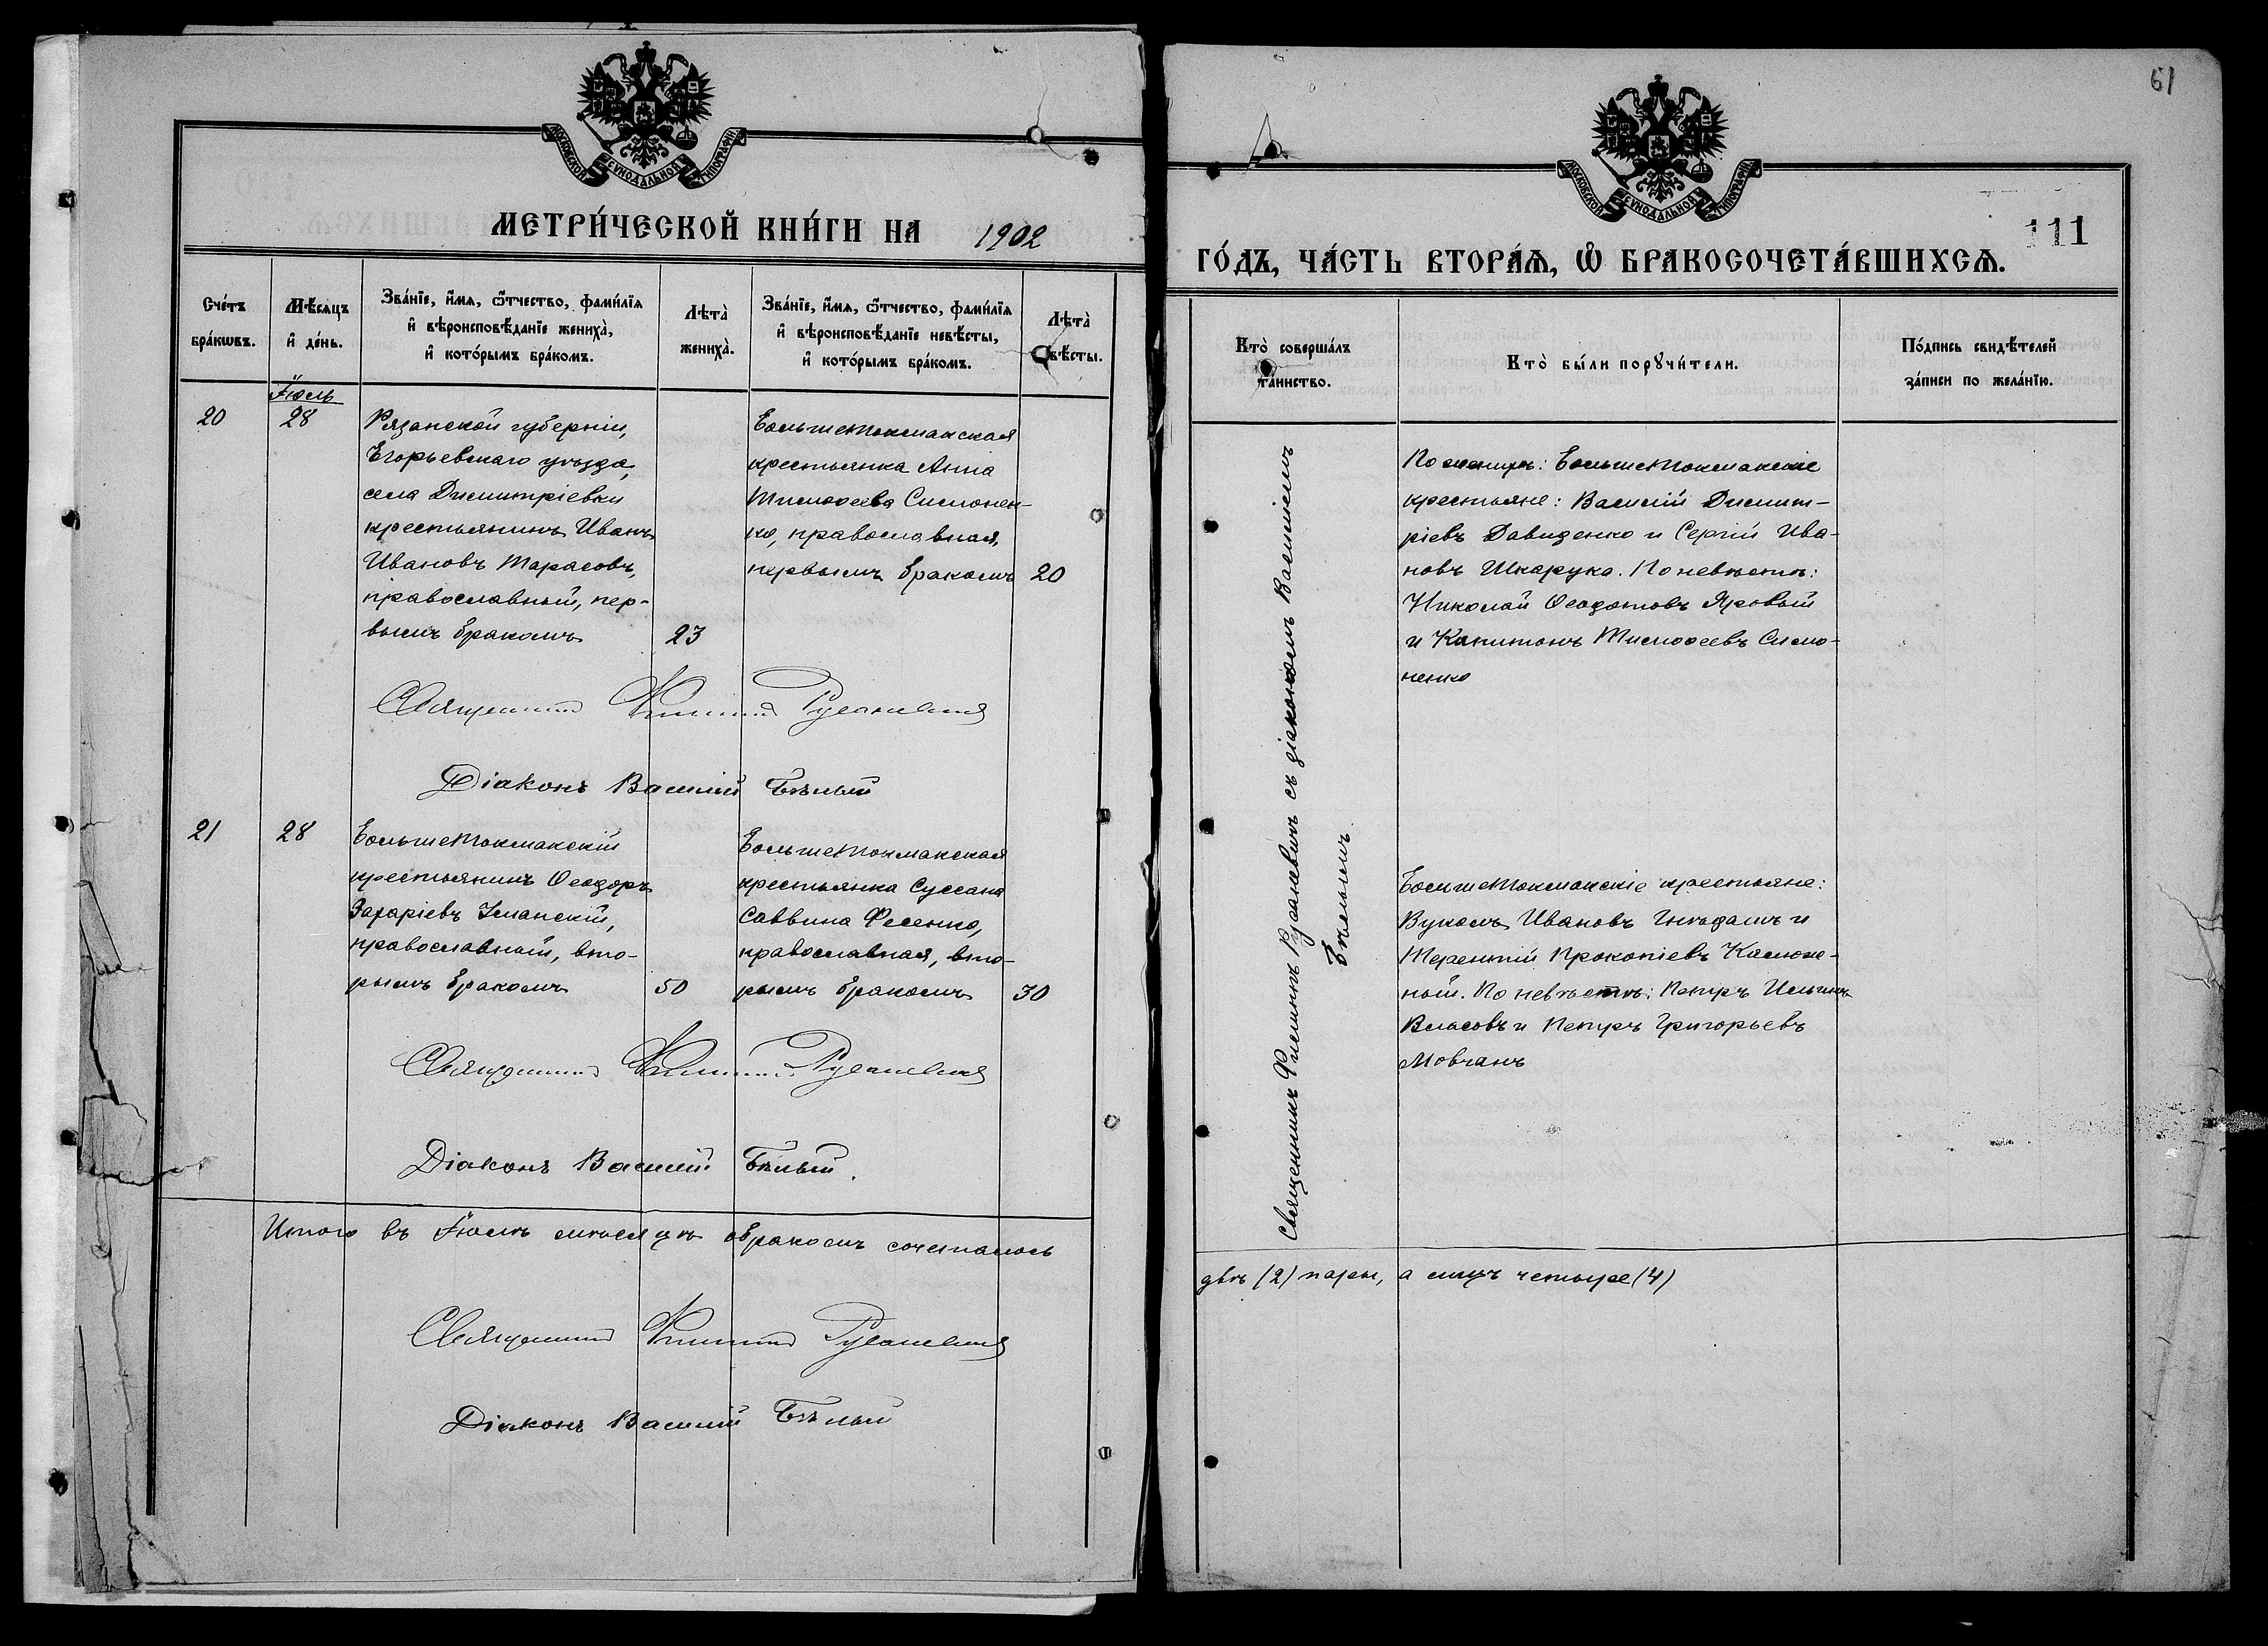 МОСКОВСКОЙ СѴНОДАЛЬНОЙ ТИПОГРАФІИ
МЕТРИ́ЧЕСКОЙ КНИ́ГИ НА 1902
Сче́тъ бра́кѡвъ.
Мѣ́сяцъ и҆ де́нь.
Зва́нїе, и҆́мѧ, ѻ҆́тчество, фами́лїѧ
и҆ вѣроисповѣ́данїе жениха̀,
и҆ кото́рымъ бра́комъ.
Лѣта̀ жениха̀.
Зва́нїе, и҆́мѧ, ѻ҆́тчество, фами́лїѧ
и҆ вѣроисповѣ́данїе невѣ́сты,
и҆ кото́рымъ бра́комъ.
Лѣта̀
вѣ́сты.
Іюль
20
28
Рязанской губерніи,
Егорьевскаго уѣзда,
села Димитріевки
крестьянинъ Иванъ
Ивановъ Тарасовъ,
православный, пер-
вымъ бракомъ
23
Большетокмакская
крестьянка Анна
Тимоѳеева Симонен-
ко, православная,
первымъ бракомъ
20
Священникъ Филиппъ Русаневичъ
Діаконъ Василій Бѣлый
21
28
Большетокмакскій
крестьянинъ Ѳеодоръ
Захаріевъ
православный, вто-
рымъ бракомъ
50
Большетокмакская
крестьянка Суссана
Саввина Фесенко,
православная, вто-
рымъ бракомъ
30
Священникъ Филиппъ Русаневичъ
Діаконъ Василій Бѣлый.
Итого въ Іюлѣ мѣсяцѣ бракомъ сочеталось
Священникъ Филиппъ Русаневичъ
Діаконъ Василій Бѣлый
61
МОСКОВСКОЙ СѴНОДАЛЬНОЙ ТИПОГРАФІИ
111
ГО́ДЪ, ЧА́СТЬ ВТОРА́Ѧ, Ѡ҆ БРАКОСОЧЕТА́ВШИХСѦ.
Кто̀ соверша́лъ
та́инство.
Кто̀ бы́ли порꙋчи́тели.
По́дпись свидѣ́телей
за́писи по жела́нїю.
Священникъ Филиппъ Русаневичъ съ діакономъ Василіемъ
Бѣлымъ.
По женихѣ: Большетокмакскіе
крестьяне: Василій Димит-
ріевъ Давиденко и Сергій Ива-
новъ Шкарука. По невѣстѣ:
Николай Ѳеодотовъ Яровый
и Капитонъ Тимоѳеевъ Симо-
ненко
Большетокмакскіе крестьяне:
Вуколъ Ивановъ и
Терентій Прокопіевъ
ный. По невѣстѣ: Петръ Ильинъ
Власовъ и Петръ Григорьевъ
Мовчанъ
двѣ (2) пары, а лицъ четыре (4)